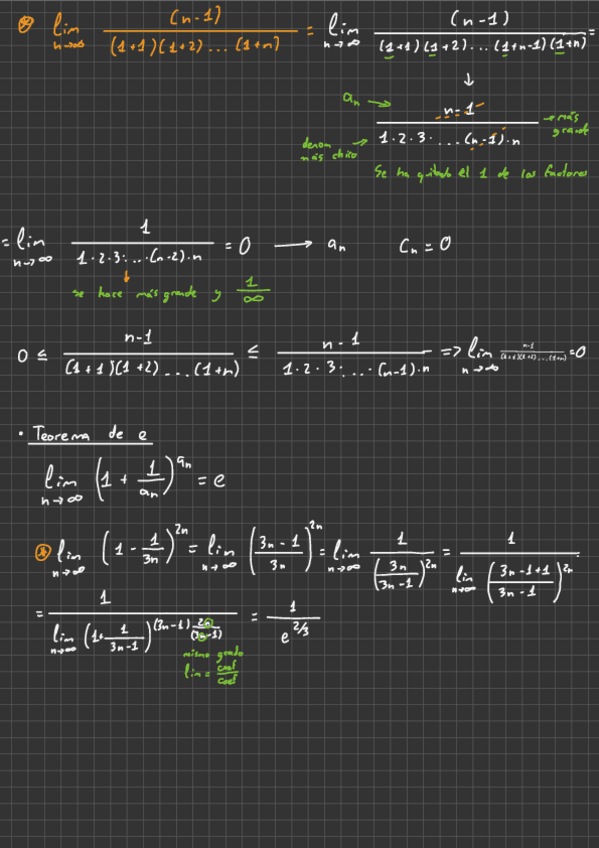 lim n→∞ (n-1) / (1+1)(1+2)...(1+n) = lim n→∞ (n-1) / (1+1)(1+2)...(1+n-1)(1+n) =
↓
an → n-1 / 1·2·3·...(n-1)·n → más grande
denom más chico
Se ha quitado el 1 de los factores
= lim n→∞ 1 / 1·2·3·...·(n-2)·n = 0 → an Cn = 0
↓
se hace más grande y 1/∞
0 ≤ n-1 / (1+1)(1+2)...(1+n) ≤ n-1 / 1·2·3·...·(n-1)·n => lim n→∞ n-1 / (1+1)(1+2)...(1+n) = 0
· Teorema de e
lim n→∞ (1 + 1/an)^an = e
lim n→∞ (1 - 1/3n)^2n = lim n→∞ (3n-1 / 3n)^2n = lim n→∞ 1 / (3n / 3n-1)^2n = 1 / lim n→∞ (3n-1+1 / 3n-1)^2n
= 1 / lim n→∞ (1+ 1/3n-1)^(3n-1) 2n/(3n-1) = 1 / e^2/3
mismo grado
lim = coef/coef